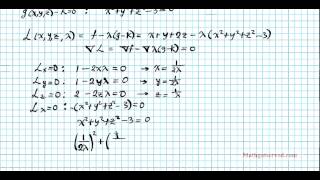 g(x,y,z) - k = 0 : x²+y²+z²-3=0
L(x,y,z,λ) = f - λ(g-k) = x+y+2z - λ(x²+y²+z²-3)
∇L = ∇f - ∇λ(g-k)
Lx=0: 1-2xλ=0 → x = 1/2λ
Ly=0: 1-2yλ=0 → y = 1/2λ
Lz=0: 2-2zλ=0 → z = 1/λ
Lλ=0: -(x²+y²+z²-3)=0
x²+y²+z²-3=0
(1/2λ)² + (